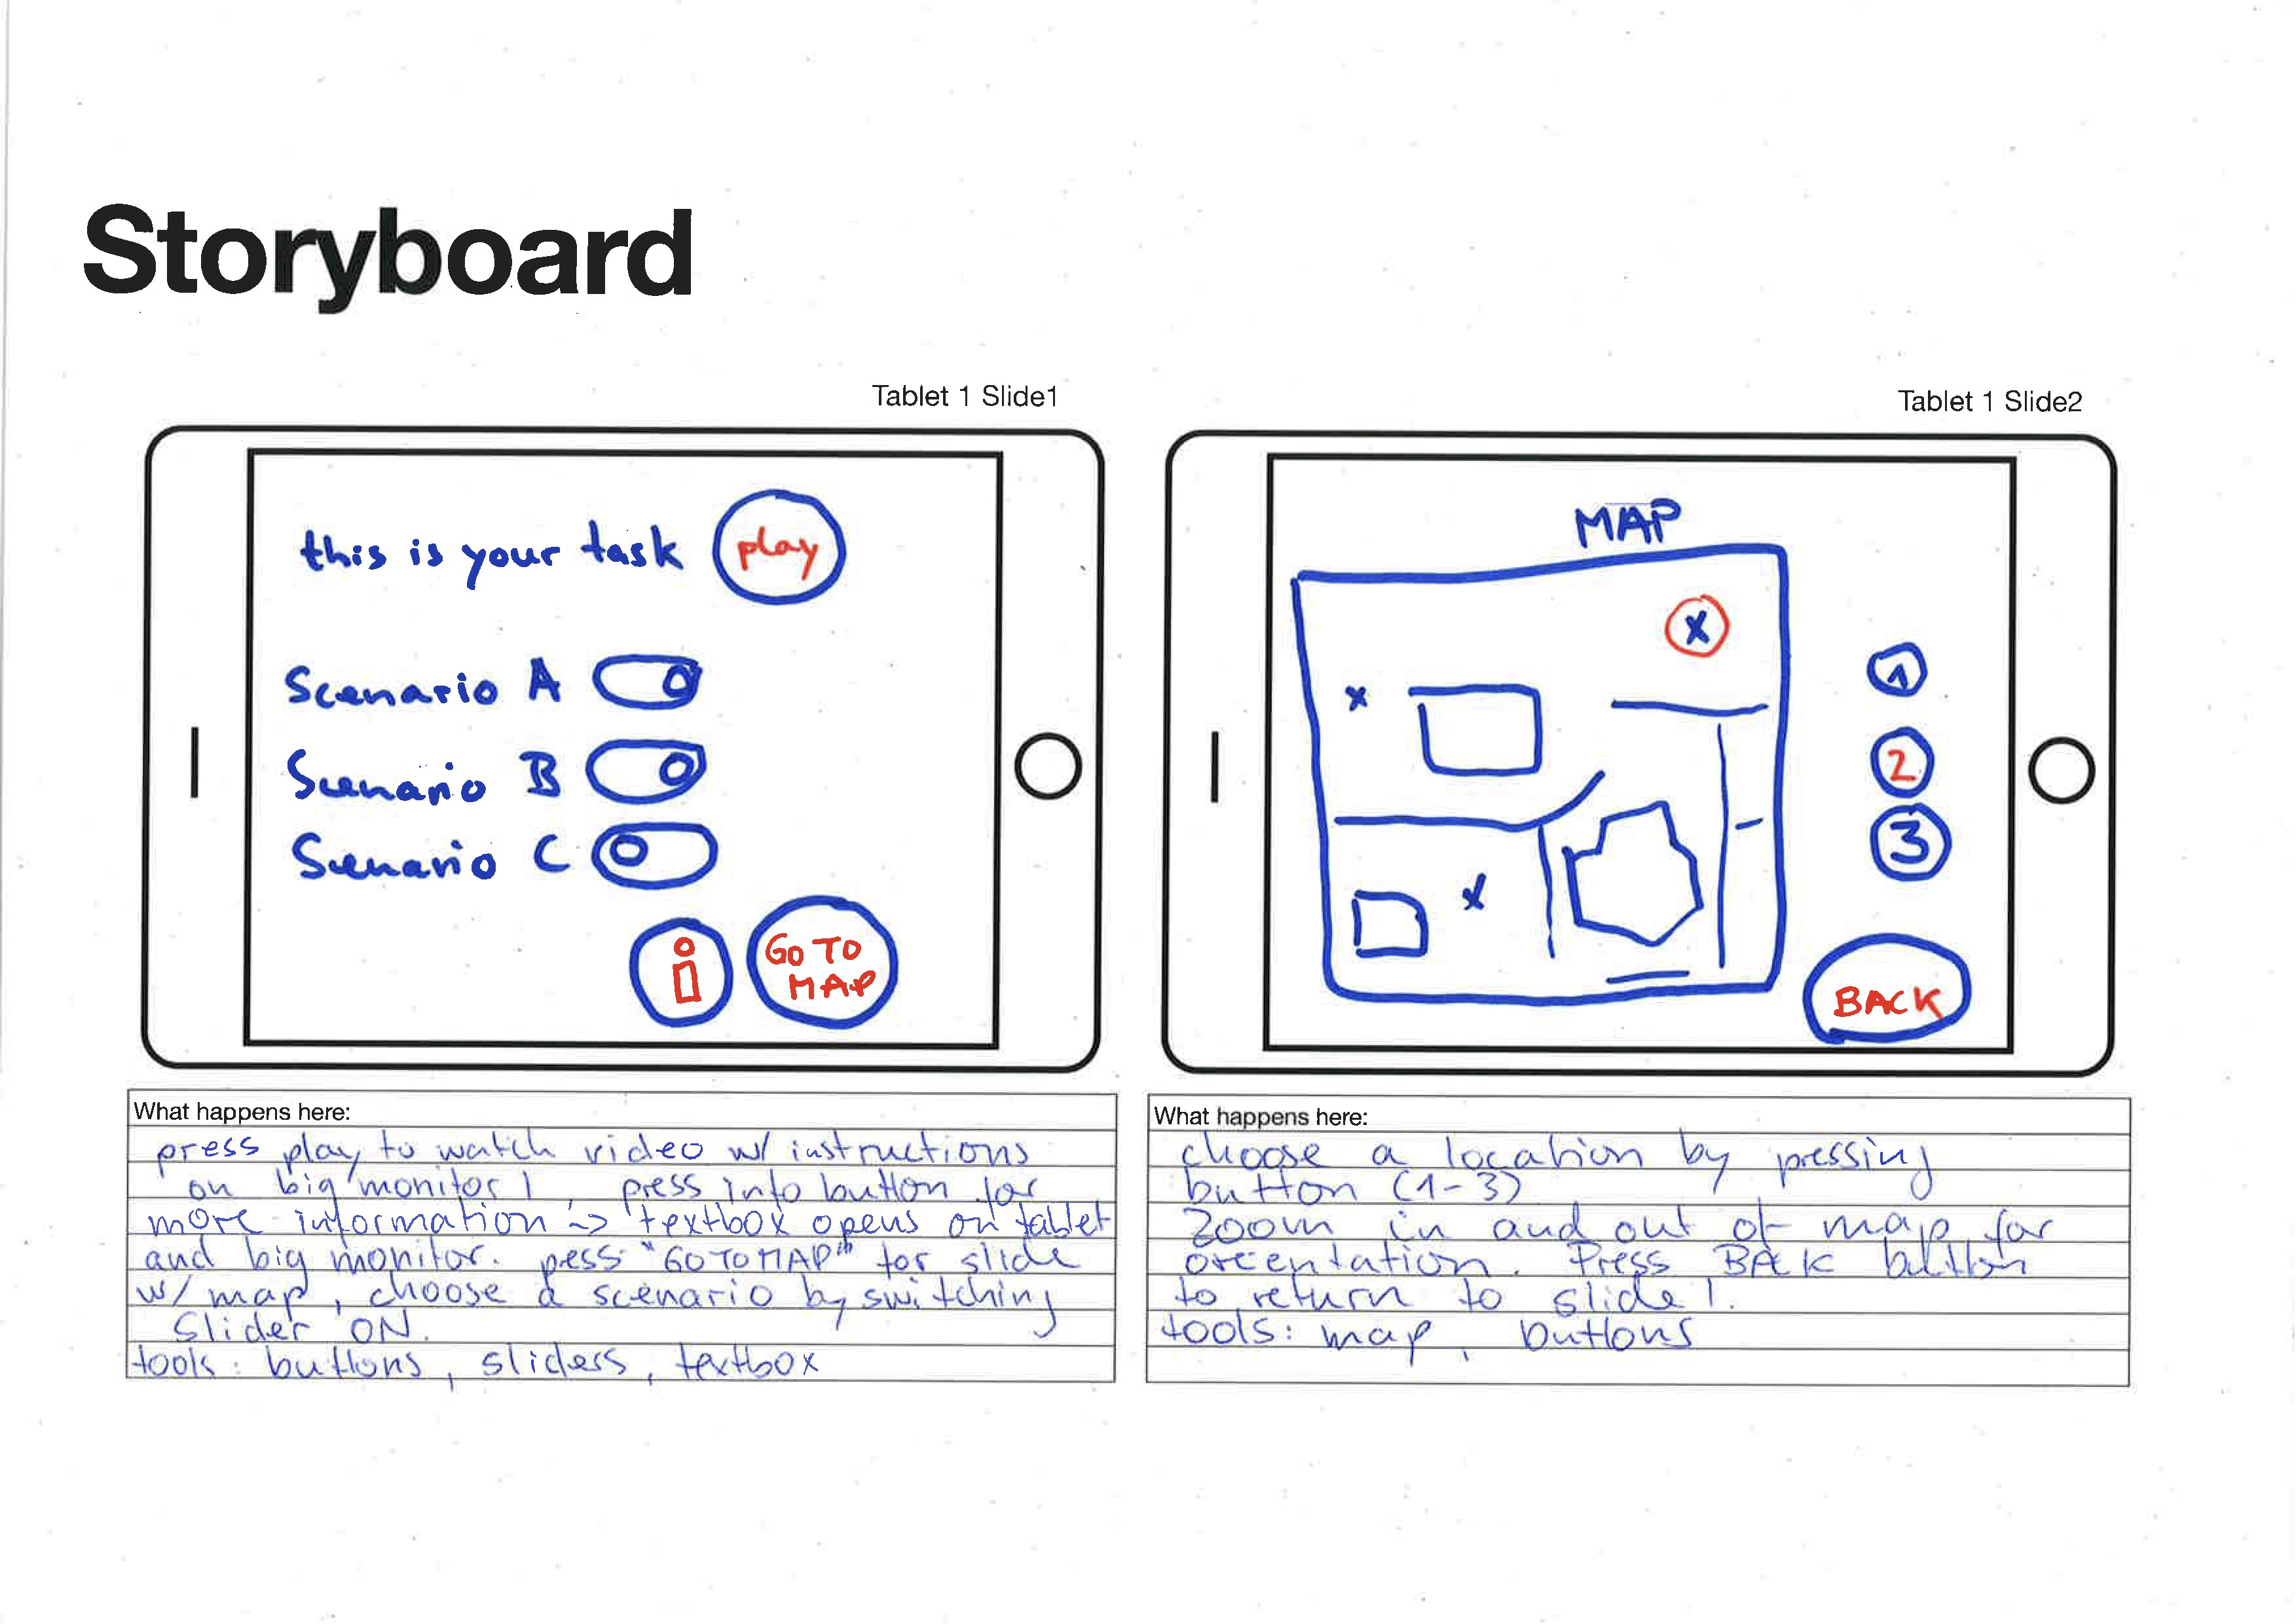 Storyboard
Tablet 1 Slide1
this is your task play
Scenario A
Scenario B
Scenario C
i GO TO
MAP
What happens here:
press play to watch video w/ instructions
on big monitor 1, press info button for
more information -> textbox opens on tablet
and big monitor. pess "GO TO MAP" for slide
w/ map, choose a scenario by switching
Slider ON.
tools: buttons, sliders, textbox
Tablet 1 Slide2
MAP
x
x
x
1
2
3
BACK
What happens here:
choose a location by pressing
button (1-3)
Zoom in and out of map for
orientation. Press BACK button
to return to slide 1.
tools: map, buttons